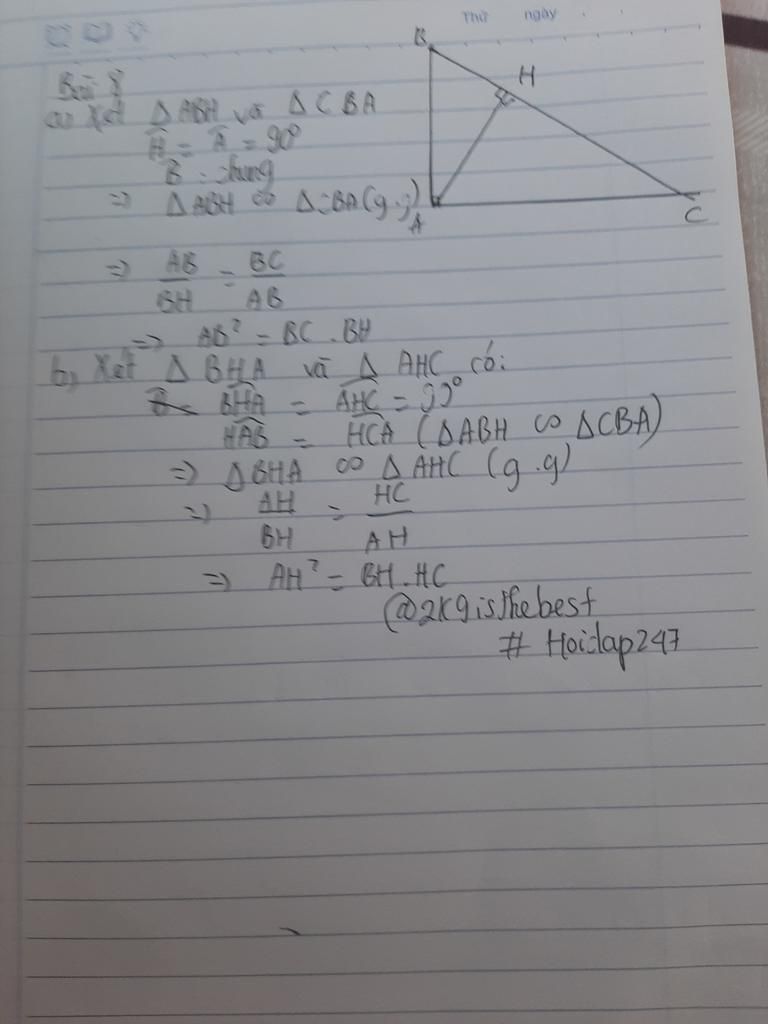 Thứ ngày
B
H
A
C
Bài 8
a) Xét Δ ABH và Δ CBA
Ĥ = Â = 90°
B̂ : chung
=> Δ ABH ∽ Δ CBA (g.g)
=> AB/BH = BC/AB
=> AB² = BC . BH
b) Xét Δ BHA và Δ AHC có:
BHA = AHC = 90°
HAB = HCA (ΔABH ∽ ΔCBA)
=> Δ BHA ∽ Δ AHC (g.g)
=> AH/BH = HC/AH
=> AH² = BH.HC
@2K9isthebest
# Hoidap247